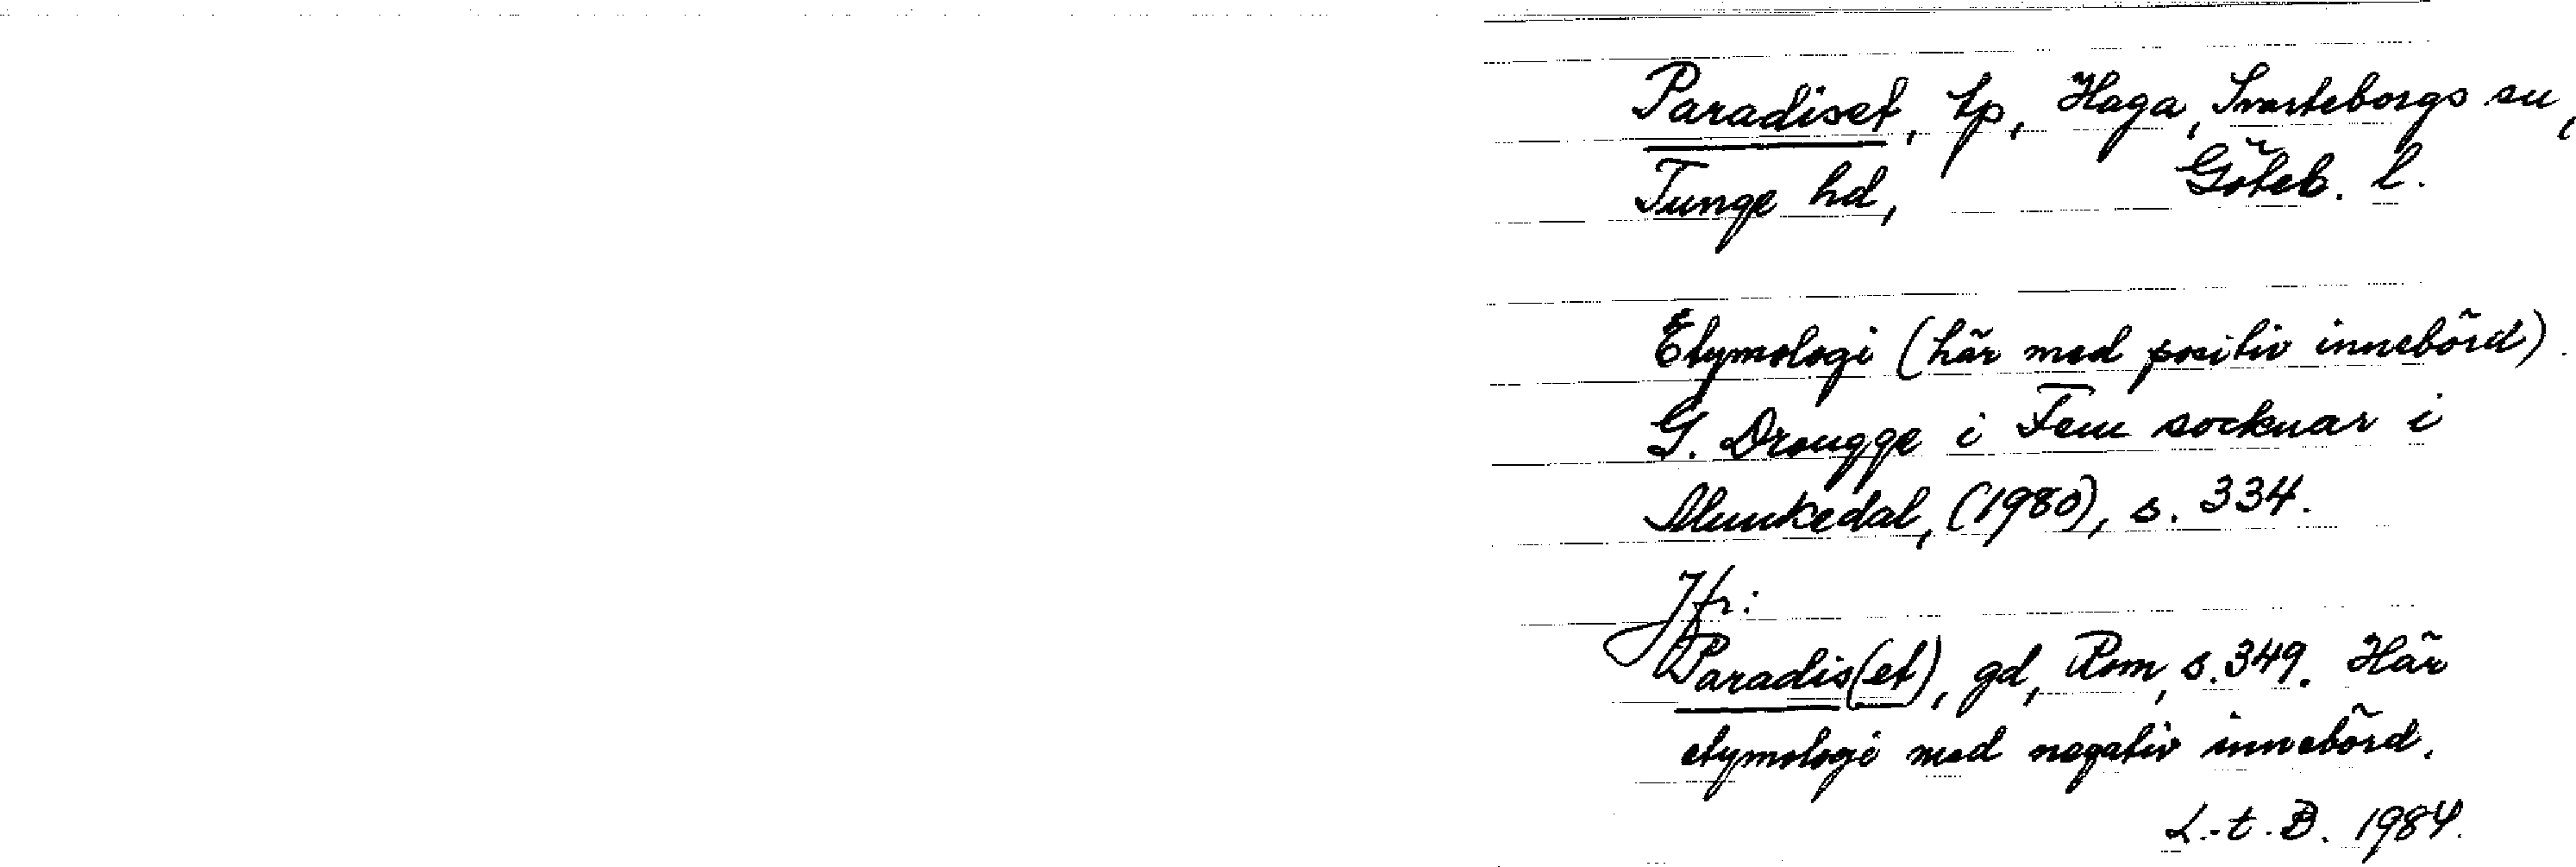 Paradiset, tp, Haga, Svarteborgs sn,
Tunge hd, Göteb. l.
Etymologi (här med positiv innebörd).
G. Drougge i Fem socknar i
Munkedal, (1980), s. 334.
Jfr:
Paradis(et), gd, Rom, s. 349. Här
etymologi med negativ innebörd.
L.-t. B. 1984.